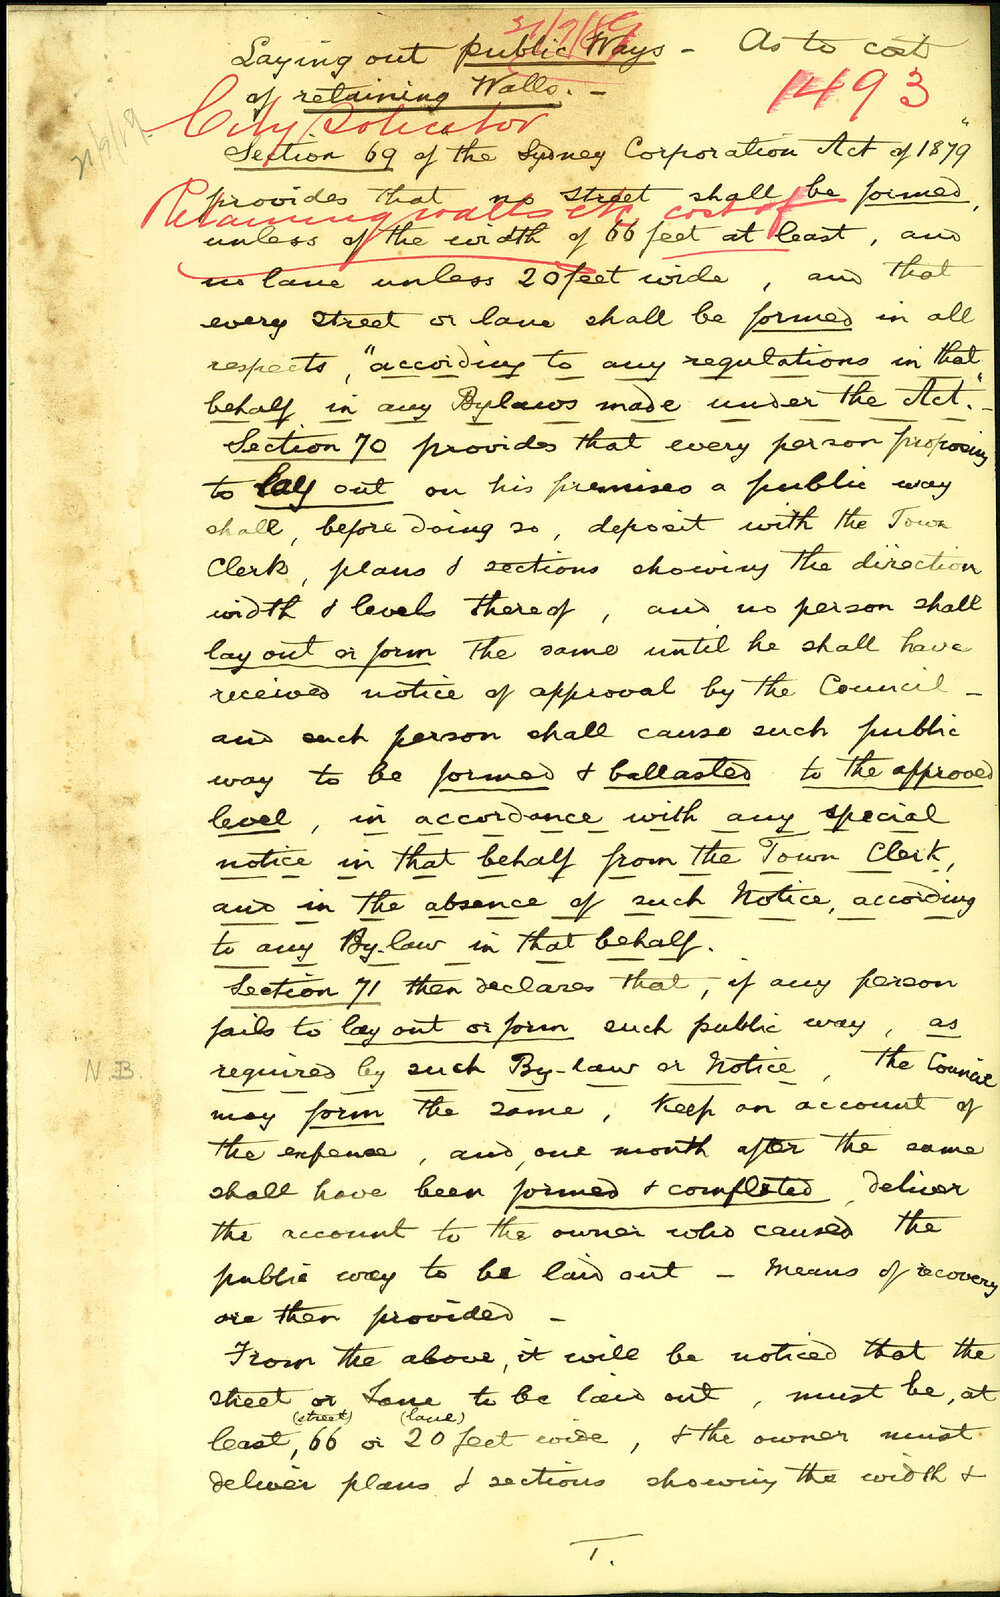 Laying out public Ways - As to cost
of retaining Walls. -
1493
City Solicitor
Retaining walls etc cost of
Section 69 of the Sydney Corporation Act of 1879"
provides that no street shall be formed,
unless of the width of 66 feet at least, and
no lane unless 20 feet wide, and that
every street or lane shall be formed in all
respects, "according to any regulations in that
behalf in any Bylaws made under the Act." -
Section 70 provides that every person proposing
to lay out on his premises a public way
shall, before doing so, deposit with the Town
Clerk, plans & sections showing the direction
width & levels thereof, and no person shall
lay out or form the same until he shall have
received notice of approval by the Council -
and such person shall cause such public
way to be formed & ballasted to the approved
level, in accordance with any special
notice in that behalf from the Town Clerk,
and in the absence of such Notice, according
to any By-law in that behalf.
Section 71 then declares that, if any person
fails to lay out or form such public way, as
N.B. required by such By-law or Notice, the Council
may form the same, keep an account of
the expense, and, one month after the same
shall have been formed & completed, deliver
the account to the owner who caused the
public way to be laid out - Means of recovery
are then provided -
From the above, it will be noticed that the
street or Lane to be laid out, must be, at
(street) (lane)
least, 66 or 20 feet wide, & the owner must
deliver plans & sections showing the width &